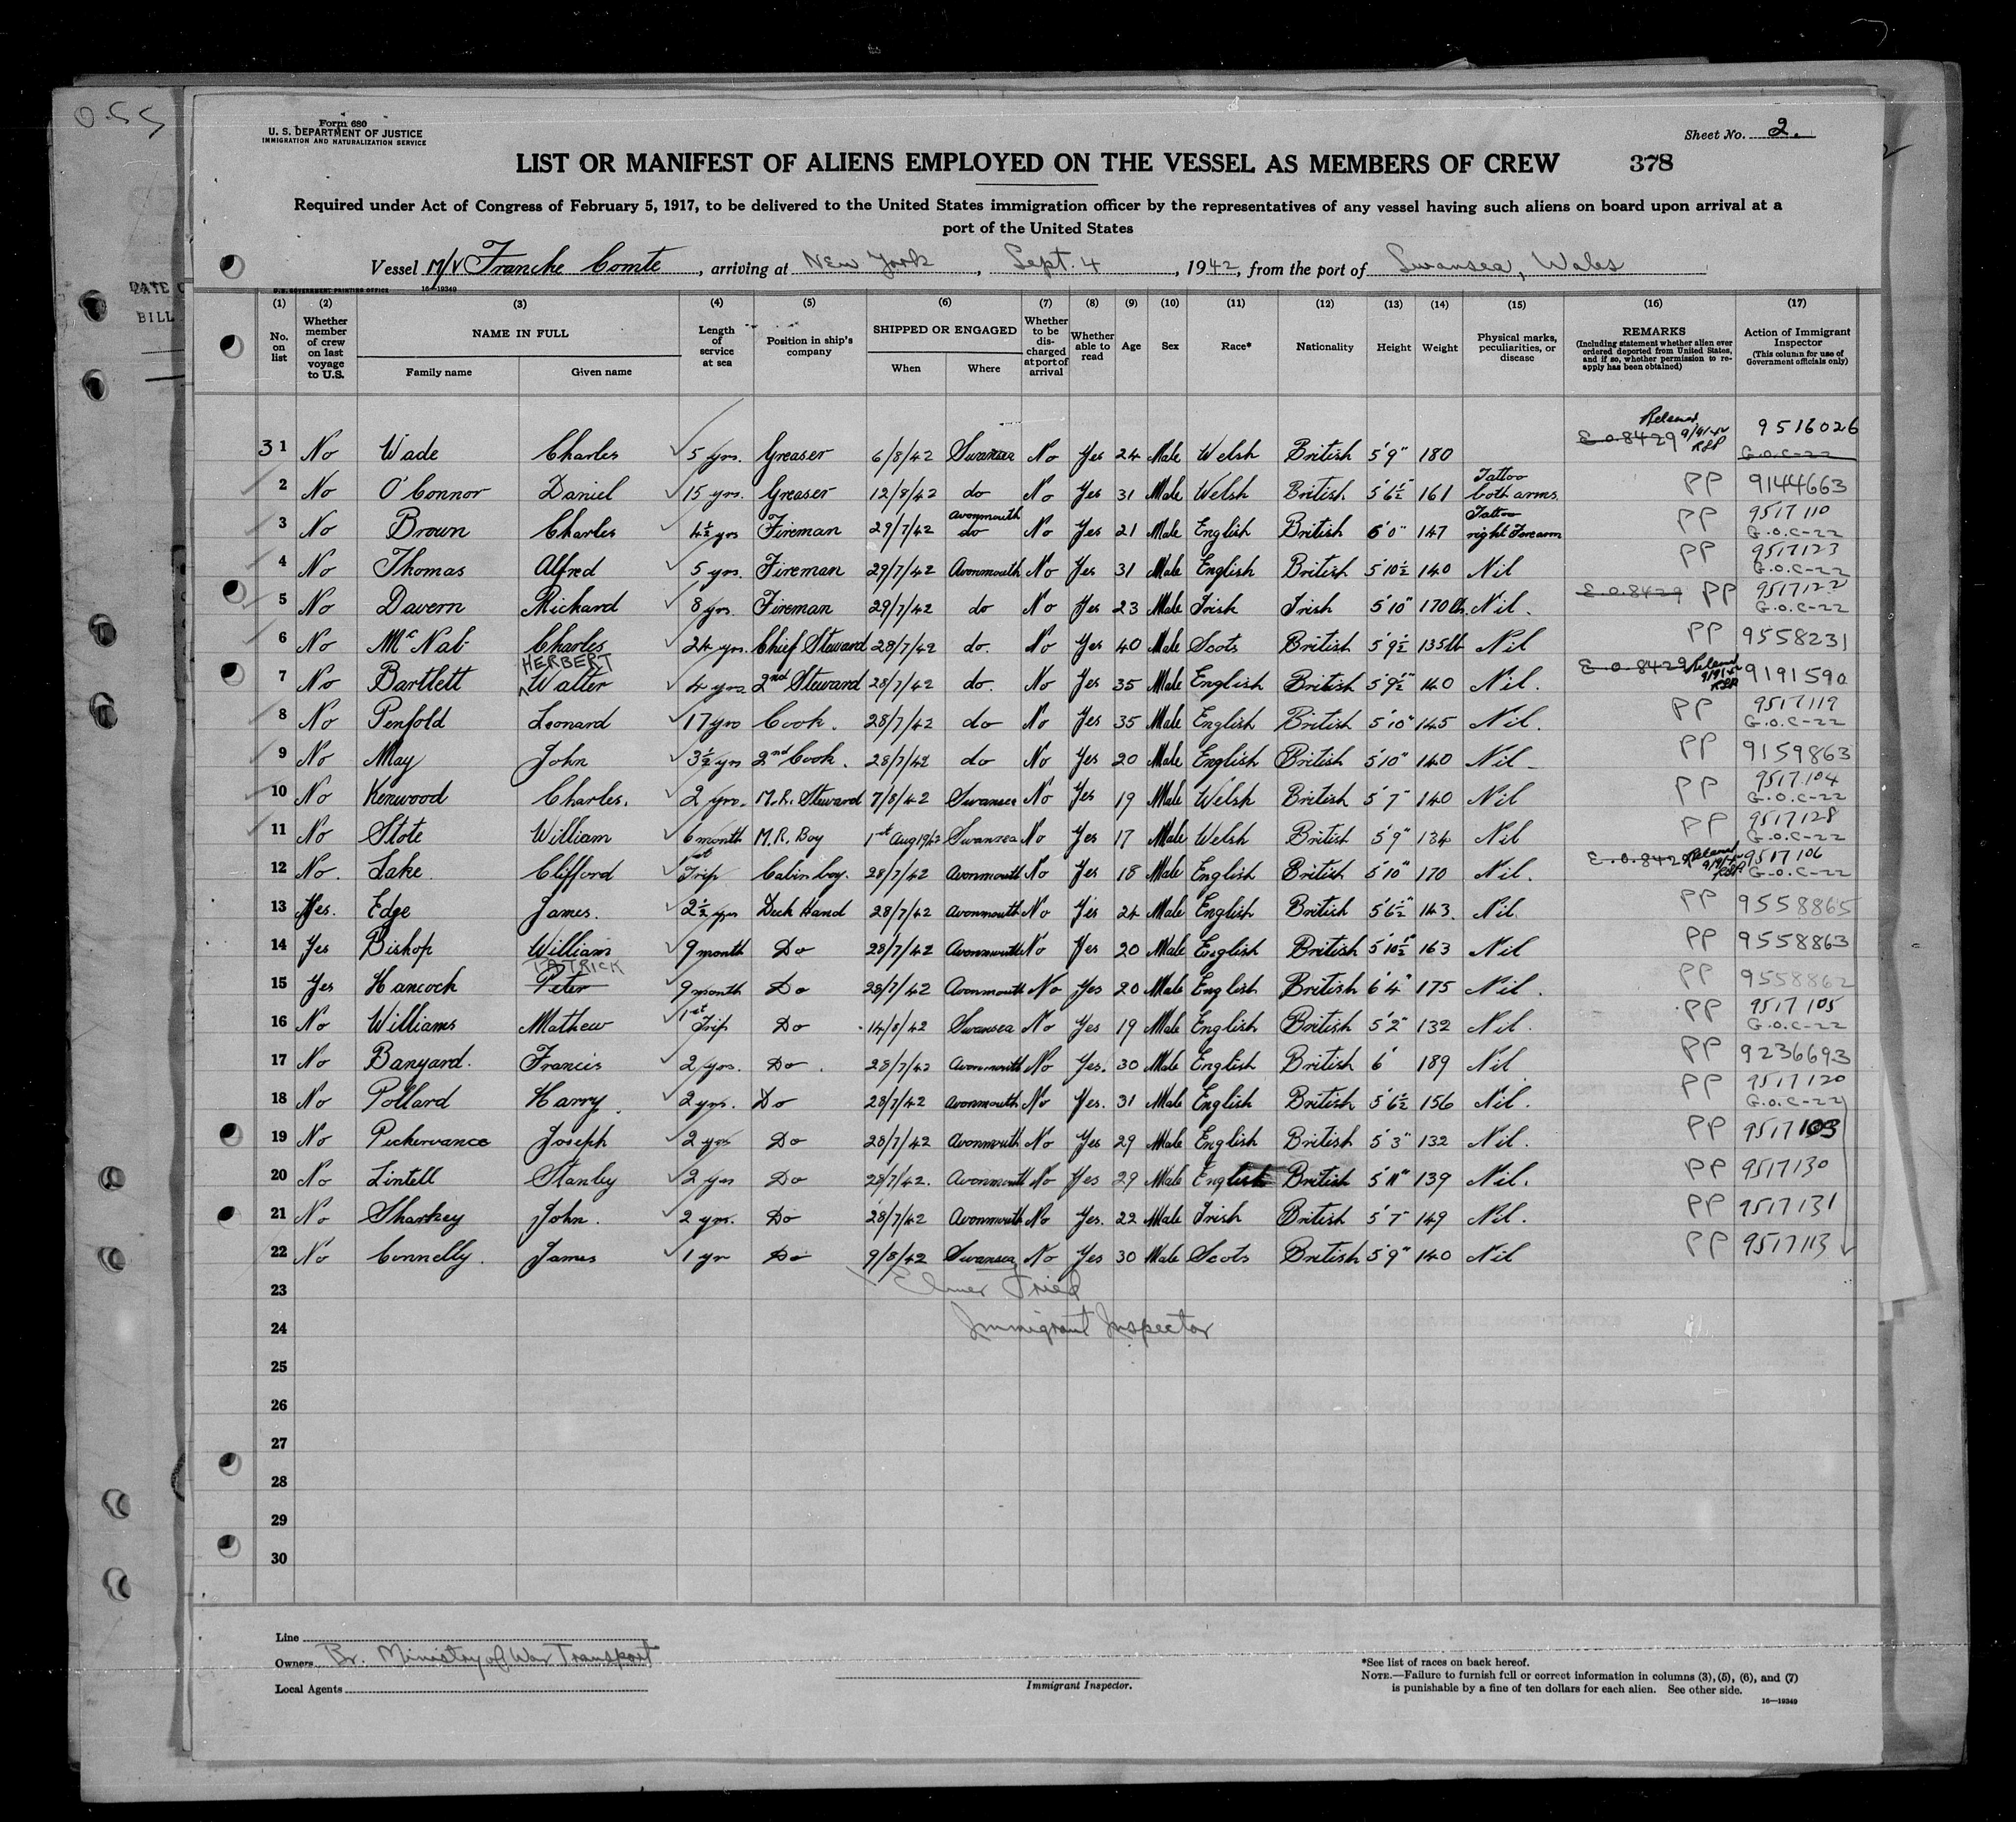 0.55
Form 680
U. S. DEPARTMENT OF JUSTICE
IMMIGRATION AND NATURALIZATION SERVICE
Sheet No. 2.
LIST OR MANIFEST OF ALIENS EMPLOYED ON THE VESSEL AS MEMBERS OF CREW 378
Required under Act of Congress of February 5, 1917, to be delivered to the United States immigration officer by the representatives of any vessel having such aliens on board upon arrival at a
port of the United States
Vessel M/V Franche Comte, arriving at New York, Sept. 4, 1942, from the port of Swansea, Wales
U.S. GOVERNMENT PRINTING OFFICE 16—19349
(1) (2) (3) (4) (5) (6) (7) (8) (9) (10) (11) (12) (13) (14) (15) (16) (17)
No. on list
Whether member of crew on last voyage to U.S.
NAME IN FULL
Family name Given name
Length of service at sea
Position in ship's company
SHIPPED OR ENGAGED
When Where
Whether to be discharged at port of arrival
Whether able to read
Age
Sex
Race*
Nationality
Height
Weight
Physical marks, peculiarities, or disease
REMARKS
(Including statement whether alien ever ordered deported from United States, and if so, whether permission to reapply has been obtained)
Action of Immigrant Inspector
(This column for use of Government officials only)
31 No Wade Charles 5 yrs. Greaser 6/8/42 Swansea No Yes 24 Male Welsh British 5'9" 180 E.O. 8429 9516026 G.O.C-22
2 No O'Connor Daniel 15 yrs. Greaser 12/8/42 do No Yes 31 Male Welsh British 5'6½" 161 Tattoo both arms. PP 9144663
3 No Brown Charles 4½ yrs Fireman 29/7/42 Avonmouth do No Yes 21 Male English British 6'0" 147 Tattoo right Forearm PP 9517110 G.O.C-22
4 No Thomas Alfred 5 yrs. Fireman 29/7/42 Avonmouth No Yes 31 Male English British 5'10½ 140 Nil PP 9517123 G.O.C-22
5 No Davern Richard 8 yrs. Fireman 29/7/42 do No Yes 23 Male Irish Irish 5'10" 170 lb. Nil. E.O. 8429 PP 9517122 G.O.C-22
6 No McNab Charles 24 yrs. Chief Steward 28/7/42 do. No Yes 40 Male Scots British 5'9½ 135 lb Nil PP 9558231
7 No Bartlett HERBERT Walter 4 yrs 2nd Steward 28/7/42 do. No Yes 35 Male English British 5'9½" 140 Nil. E.O. 8429 9191590
8 No Penfold Leonard 17 yrs Cook. 28/7/42 do No Yes 35 Male English British 5'10" 145 Nil. PP 9517119 G.O.C-22
9 No May John 3½ yrs 2nd Cook. 28/7/42 do No Yes 20 Male English British 5'10" 140 Nil PP 9159863
10 No Kenwood Charles. 2 yrs. M.R. Steward 7/8/42 Swansea No Yes 19 Male Welsh British 5'7" 140 Nil PP 9517104 G.O.C-22
11 No Stote William 6 month M.R. Boy 1st Aug 1942 Swansea No Yes 17 Male Welsh British 5'9" 134 Nil PP 9517128 G.O.C-22
12 No. Lake Clifford 1st Trip Cabin boy. 28/7/42 Avonmouth No Yes 18 Male English British 5'10" 170 Nil. E.O. 8429 9517106 G.O.C-22
13 Yes. Edge James. 2½ yrs Deck Hand 28/7/42 Avonmouth No Yes 24 Male English British 5'6½" 143. Nil. PP 9558865
14 Yes Bishop William 9 month Do 28/7/42 Avonmouth No Yes 20 Male English British 5'10½" 163 Nil PP 9558863
15 Yes Hancock PATRICK Peter 9 month Do 28/7/42 Avonmouth No Yes 20 Male English British 6'4" 175 Nil. PP 9558862
16 No Williams Mathew 1st Trip Do 14/8/42 Swansea No Yes 19 Male English British 5'2" 132 Nil. PP 9517105 G.O.C-22
17 No Banyard. Francis 2 yrs. Do. 28/7/42 Avonmouth No Yes. 30 Male English British 6' 189 Nil PP 9236693
18 No Pollard Harry. 2 yrs. Do 28/7/42 Avonmouth No Yes. 31 Male English British 5'6½ 156 Nil. PP 9517120 G.O.C-22
19 No Peckervance Joseph 2 yrs Do 28/7/42 Avonmouth No Yes 29 Male English British 5'3" 132 Nil. PP 9517103
20 No Lintell Stanley 2 yrs Do 28/7/42. Avonmouth No Yes 29 Male English British 5'11" 139 Nil. PP 9517130
21 No Sharkey John. 2 yrs. Do 28/7/42 Avonmouth No Yes. 22 Male Irish British 5'7" 149 Nil. PP 9517131
22 No Connelly. James 1 yr Do 9/8/42 Swansea No Yes 30 Male Scots British 5'9" 140 Nil PP 9517113
23 Elmer Fried
24 Immigrant Inspector
25
26
27
28
29
30
Line
Owners Br. Ministry of War Transport
Local Agents
Immigrant Inspector.
*See list of races on back hereof.
NOTE.—Failure to furnish full or correct information in columns (3), (5), (6), and (7)
is punishable by a fine of ten dollars for each alien. See other side.
16—19349